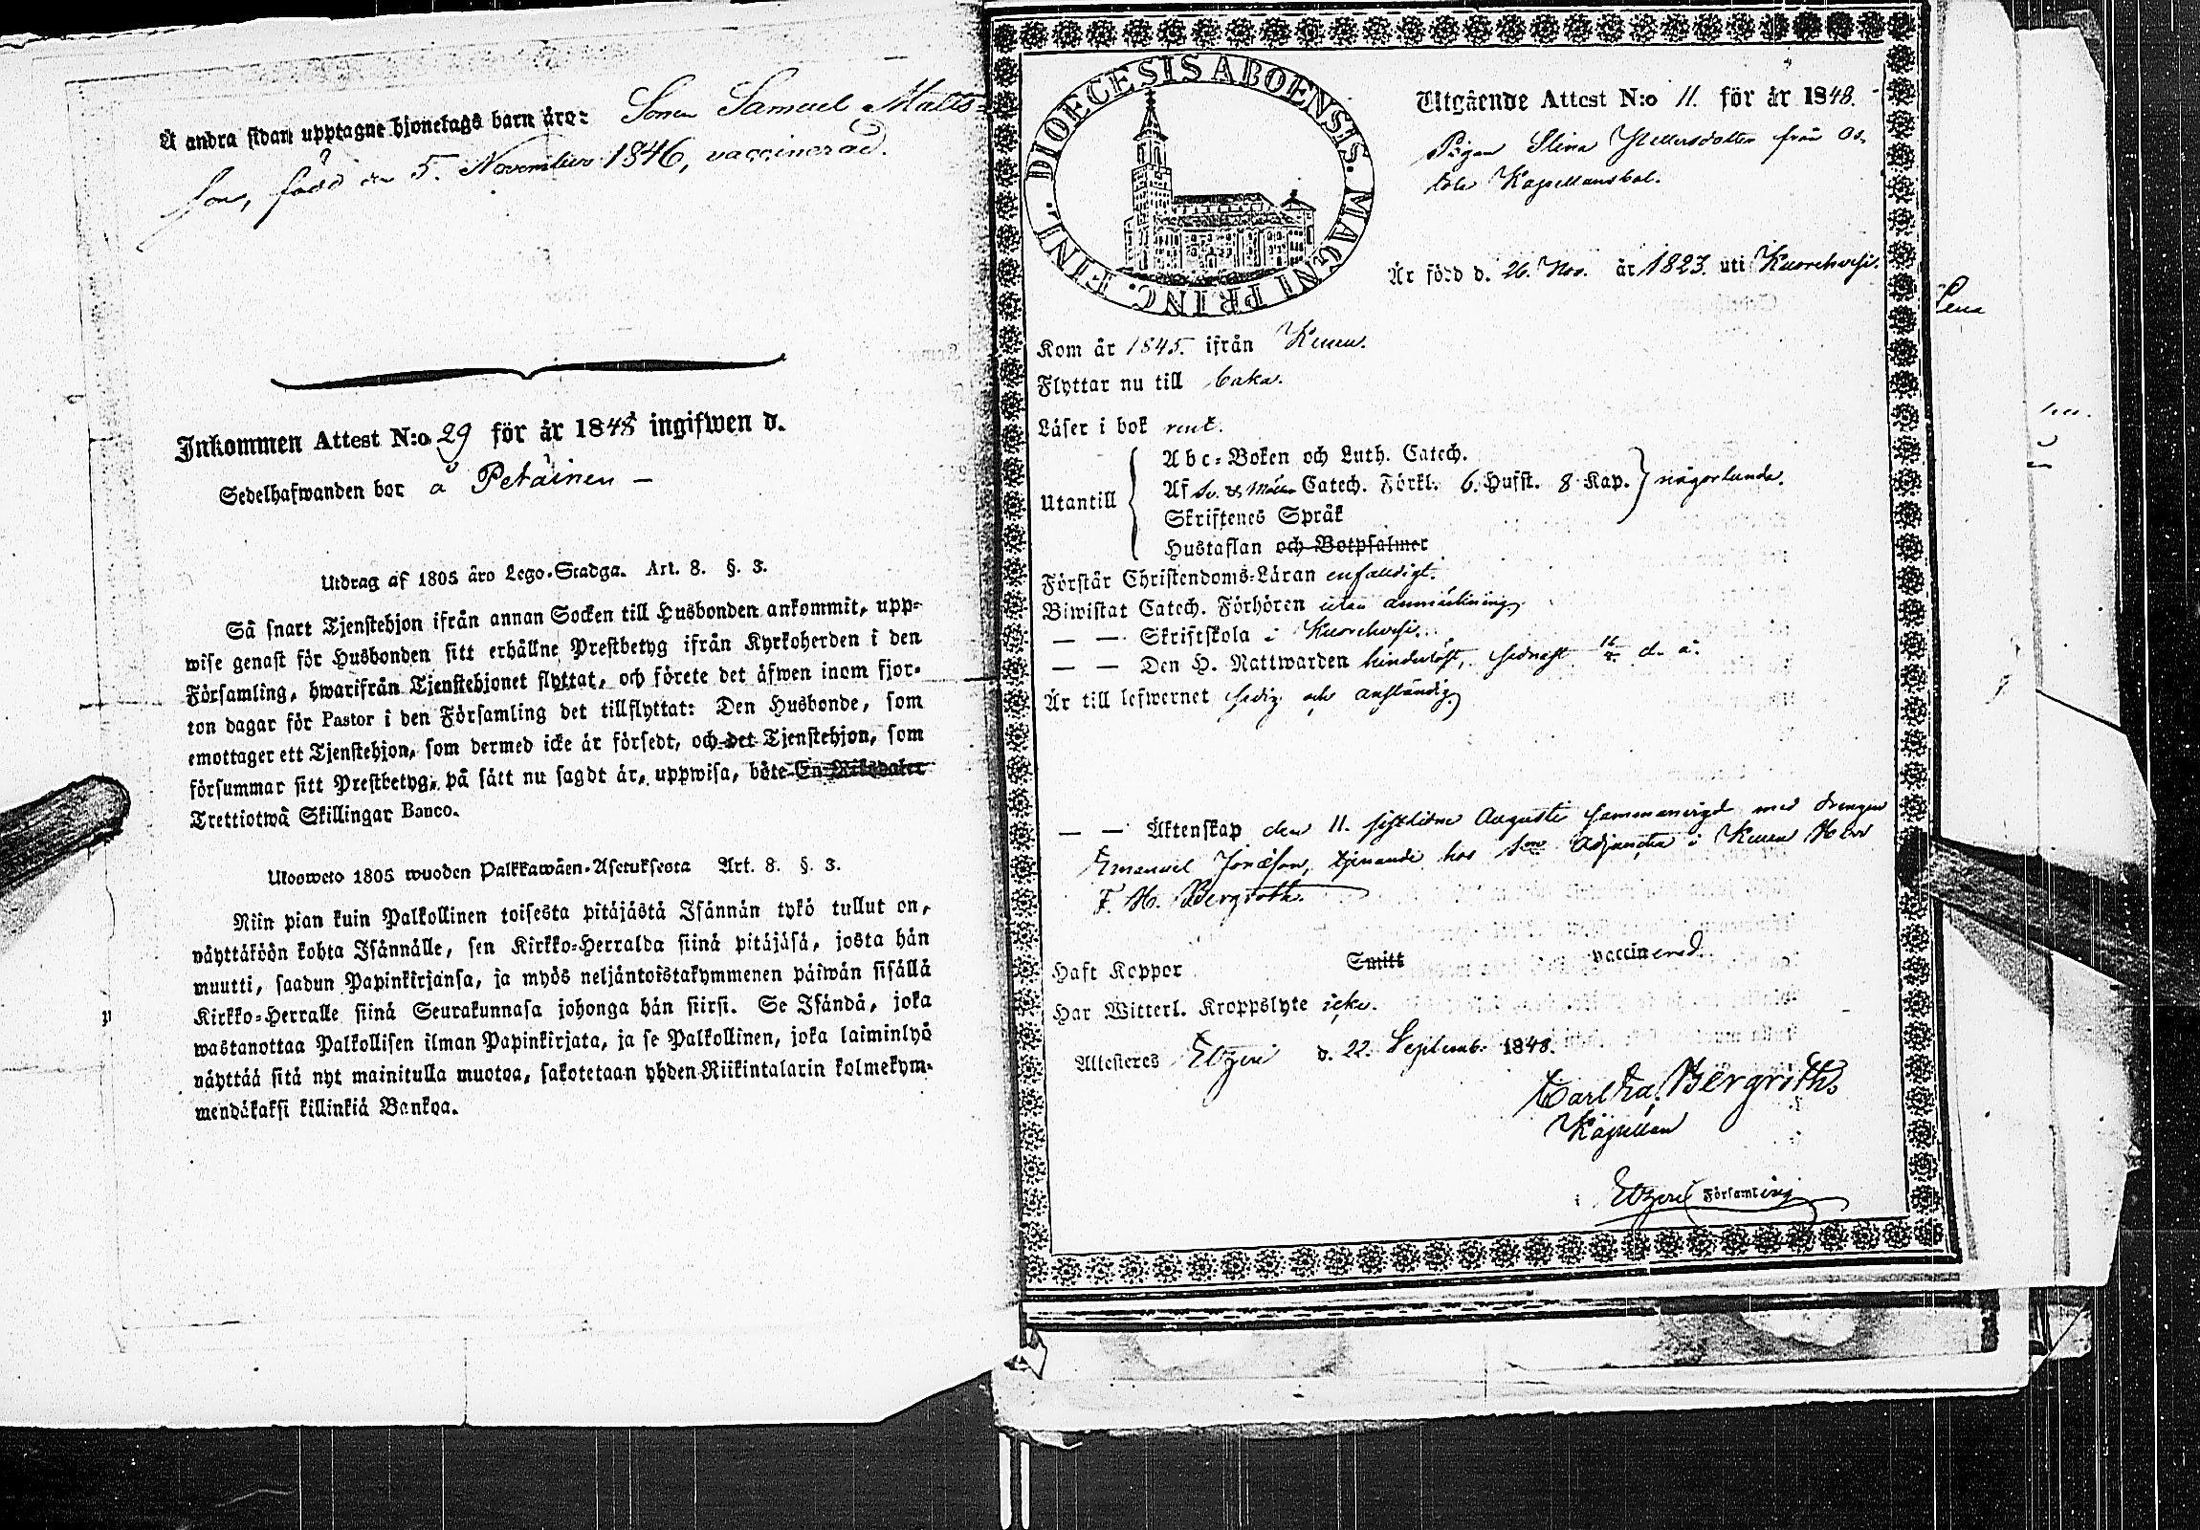 Å andra sidan upptagne hjonelags barn äro: Sonen Samuel Matts-
son, född den 5. November 1846, vaccinerad.
Inkommen Attest N:o 29 för år 1848 ingifwen d.
Sedelhafwanden bor å Petäinen –
Utdrag af 1805 åro Lego-Stadga. Art. 8. §. 3.
Så snart Tjenstehjon ifrån annan Socken till Husbonden ankommit, upp-
wise genast för Husbonden sitt erhållne Prestbetyg ifrån Kyrkoherden i den
Församling, hwarifrån Tjenstehjonet flyttat, och förete det äfwen inom fjor-
ton dagar för Pastor i den Församling det tillflyttat: Den Husbonde, som
emottager ett Tjenstehjon, som dermed icke är försedt, och det Tjenstehjon, som
försummar sitt Prestbetyg, på sätt nu sagdt är, uppwisa, böte En Riksdaler
Trettiotwå Skillingar Banco.
Ulosweto 1805 wuoden Palkkawäen-Asetuksesta Art. 8. §. 3.
Niin pian kuin Palkollinen toisesta pitäjästä Isännän tykö tullut on,
näyttäköön kohta Isännälle, sen Kirkko-Herralda siinä pitäjäsä, josta hän
muutti, saadun Papinkirjansa, ja myös neljäntoistakymmenen päiwän sisällä
Kirkko-Herralle siinä Seurakunnasa johonga hän siirsi. Se Isändä, joka
wastanottaa Palkollisen ilman Papinkirjata, ja se Palkollinen, joka laiminlyö
näyttää sitä nyt mainitulla muotoa, sakotetaan yhden Riikintalarin kolmekym-
mendäkaksi killinkiä Bankoa.
DIOECESIS ABOENSIS. MAGNI PRINC. FINL.
Utgående Attest N:o 11. för år 1848.
Pigan Stina från
Kapellansbol.
Är född d. 26. Nov. år 1823 uti Kuorehvesi.
Kom år 1845. ifrån Keuru.
Flyttar nu till baka.
Läser i bok rent.
Utantill
Abc-Boken och Luth. Catech.
Af Sv. & Möllers Catech. Förkl. 6. Hufst. 8 Kap. någorlunda.
Skriftenes Språk
Hustaflan och Botpsalmer
Förstår Christendoms-Läran enfaldigt.
Biwistat Catech. Förhören utan anmärkning.
— — Skriftskola i Kuorehvesi.
— — Den H. Nattwarden hinderlöst, sednast d. å.
Är till lefwernet sedig och anständig.
— — Äktenskap den 11. sistlidne Augusti sammanvigd med drengen
Emanuel Jonæson, tjenande hos Adjuncten i Keuru Herr
F. H. Bergroth.
Haft Koppor Smitt vaccinerad.
Har Witterl. Kroppslyte icke.
Attesteres Etzeri d. 22. Septemb. 1848.
Carl Bergroth
Kapellan
i Etzeri Församling
Lena